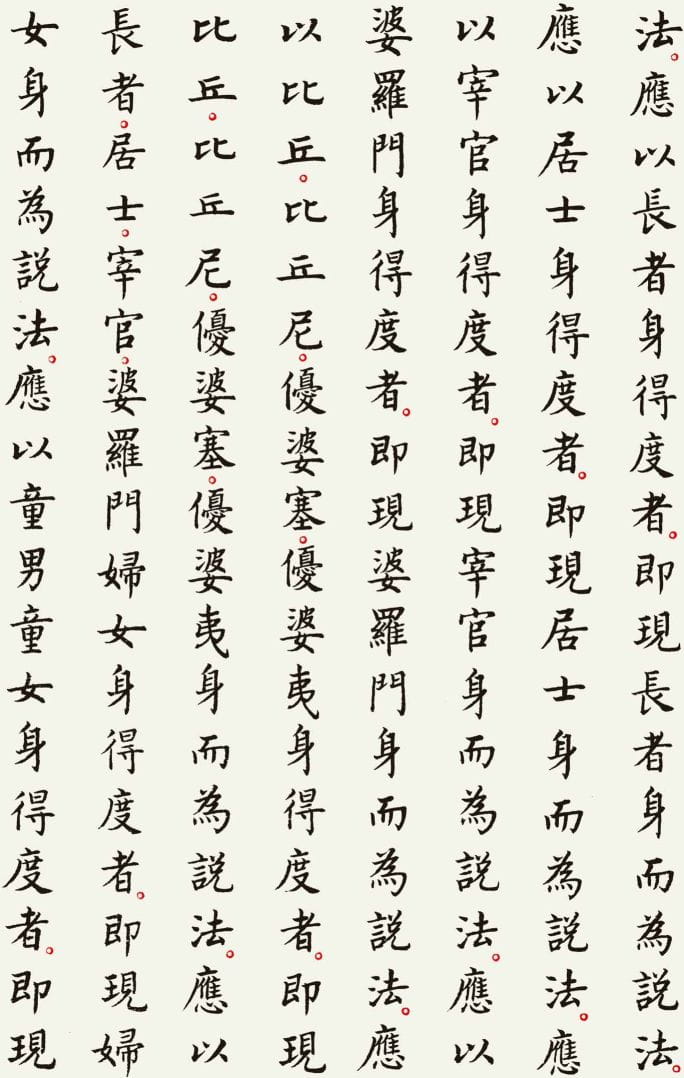 法。應以長者身得度者。即現長者身而為説法。
應以居士身得度者。即現居士身而為説法。應
以宰官身得度者。即現宰官身而為説法。應以
婆羅門身得度者。即現婆羅門身而為説法。應
以比丘。比丘尼。優婆塞。優婆夷身得度者。即現
比丘。比丘尼。優婆塞。優婆夷身而為説法。應以
長者。居士。宰官。婆羅門婦女身得度者。即現婦
女身而為説法。應以童男童女身得度者。即現